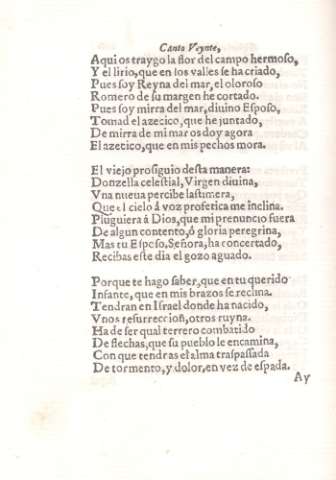 Canto Veynte,
Aqui os traygo la flor del campo hermoso,
Y el lirio, que en los valles se ha criado,
Pues soy Reyna del mar, el oloroso
Romero de su margen he cortado.
Pues soy mirra del mar, diuino Esposo,
Tomad el azecico, que he juntado,
De mirra de mi mar os doy agora
El azecico, que en mis pechos mora.
El viejo prosiguio desta manera:
Donzella celestial, Virgen diuina,
Vna nueua percibe lastimera,
Que el cielo á voz profetica me inclina.
Pluguiera á Dios, que mi prenuncio fuera
De algun contento, ó gloria peregrina,
Mas tu Esposo, Señora, ha concertado,
Recibas este dia el gozo aguado.
Porque te hago saber, que en tu querido
Infante, que en mis brazos se reclina.
Tendran en Israel donde ha nacido,
Vnos resurreccion, otros ruyna.
Ha de ser qual terrero combatido
De flechas, que su pueblo le encamina,
Con que tendras el alma traspassada
De tormento, y dolor, en vez de espada.
Ay